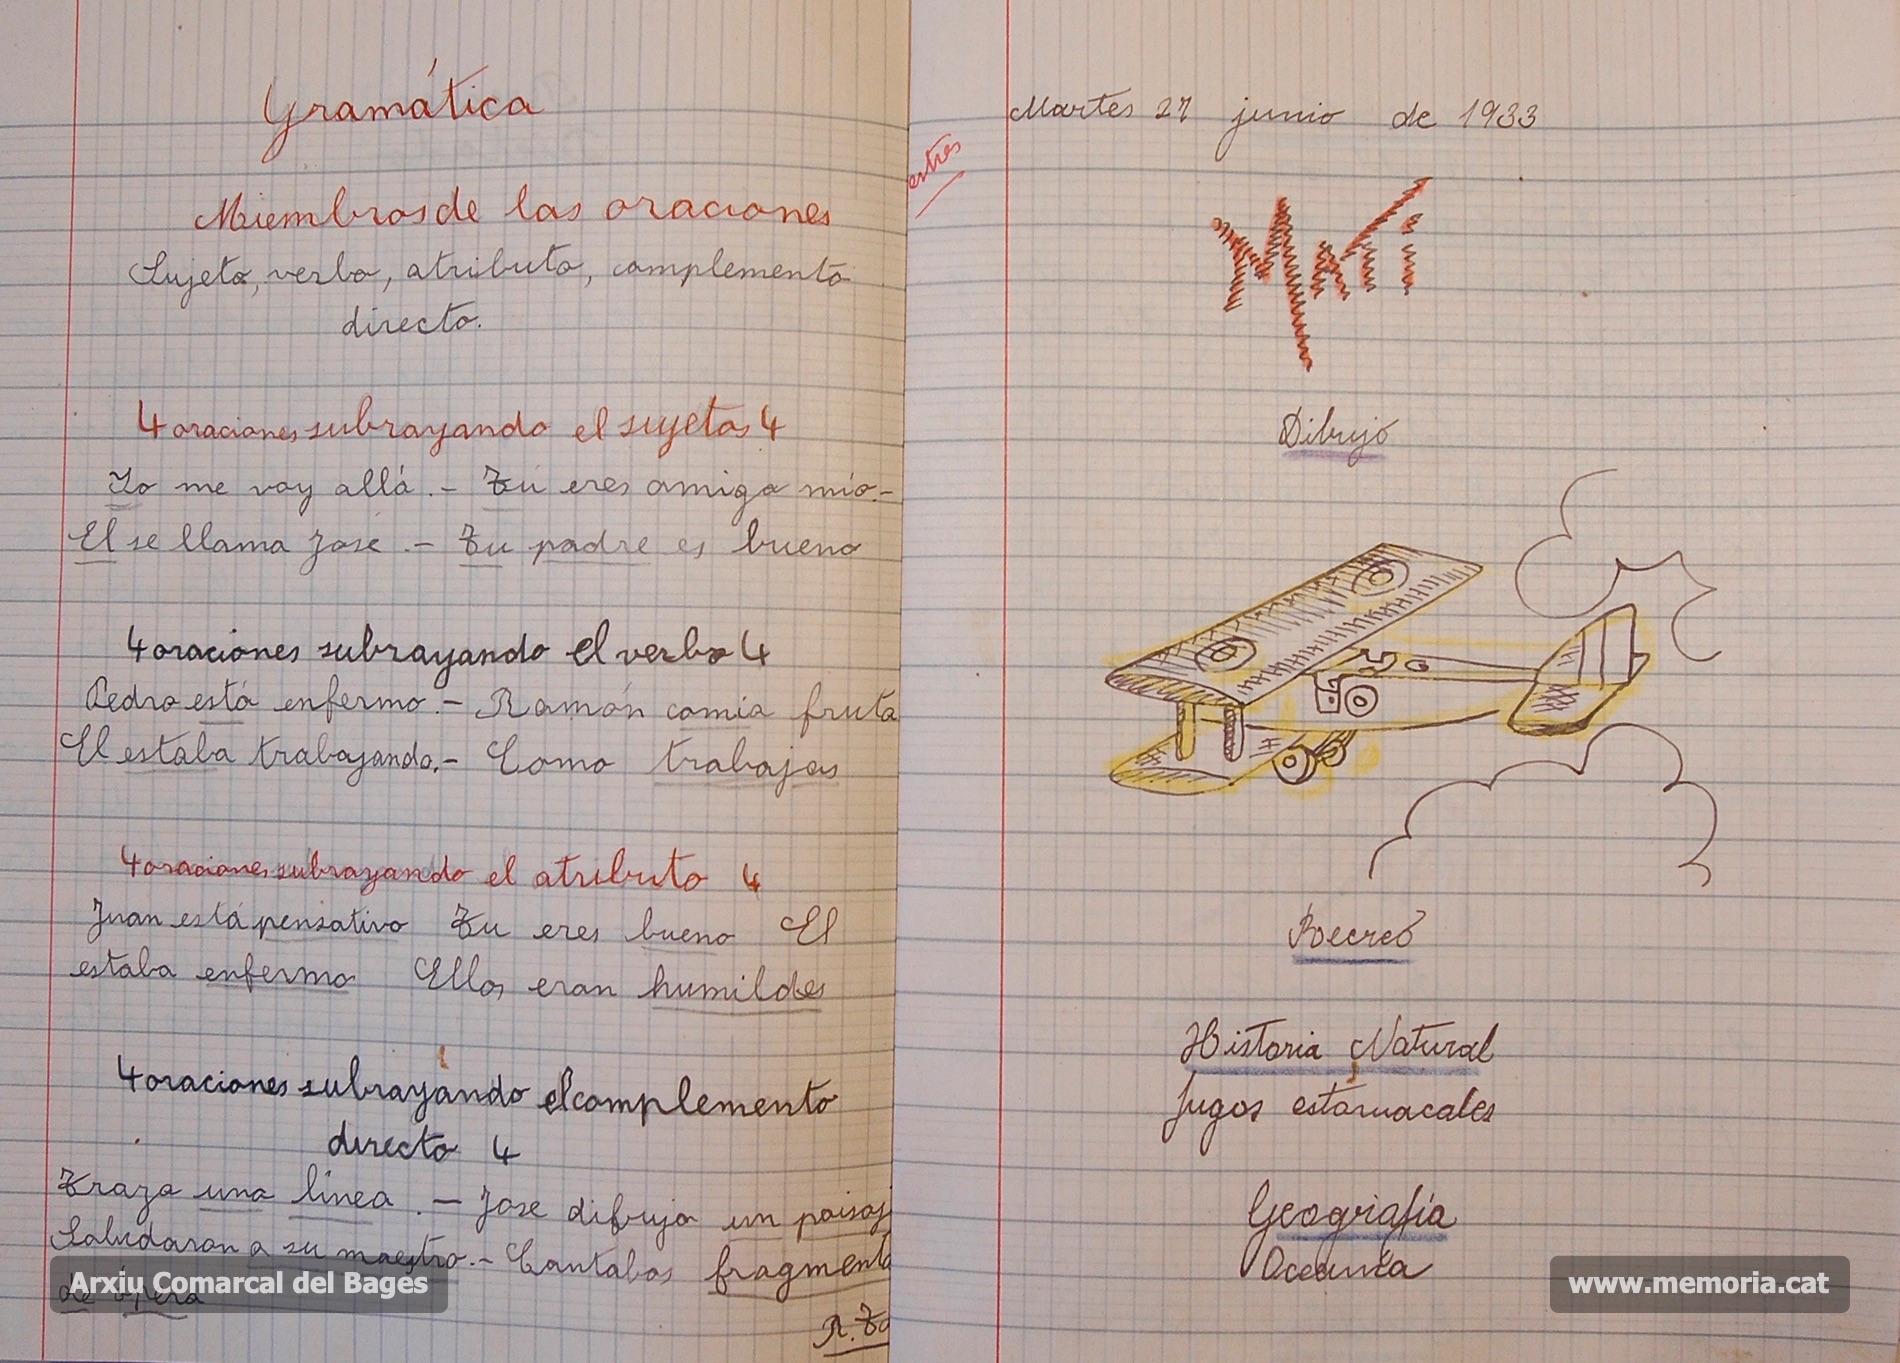 Gramática
Miembros de las oraciones
Sujeto, verbo, atributo, complemento
directo.
4 oraciones subrayando el sujetos 4
Yo me voy allá. - Tú eres amigo mío. -
El se llama José. - Tu padre es bueno
4 oraciones subrayando el verbo 4
Pedro está enfermo. - Ramón comia fruta
El estaba trabajando. - Como trabajas
4 oraciones subrayando el atributo 4
Juan está pensativo Tu eres bueno El
estaba enfermo Ellos eran humildes
4 oraciones subrayando el complemento
directo 4
Traza una línea. - Jose dibuja un paisaj
Saludaron a su maestro. - Cantabas fragmento
de opera
R. To
estres
Martes 27 junio de 1933
Dibujo
Recreo
Historia Natural
Jugos estomacales
Geografía
Oceanía
Arxiu Comarcal del Bages
www.memoria.cat